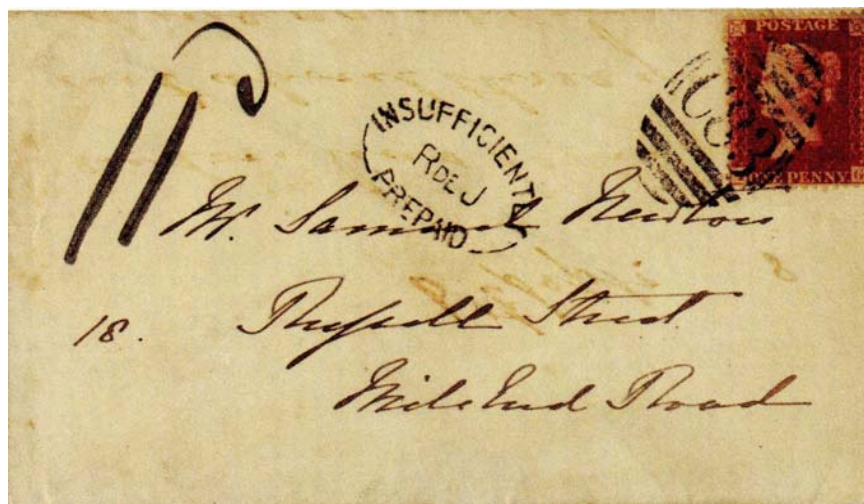 POSTAGE
ONE PENNY
C82
INSUFFICIENTLY
R DE J
PREPAID
11d
Mr. Samuel Newton
18. Russell Street
Mile End Road